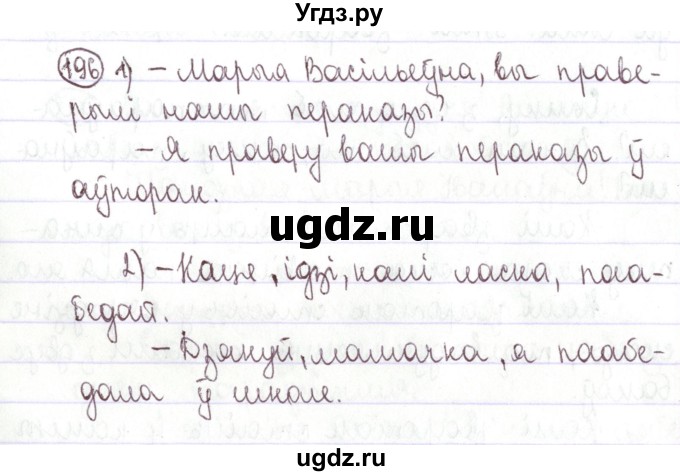 Угдз.ру
196 1) – Марыя Васільеўна, вы праве-
рылі нашы пераказы?
– Я праверу вашы пераказы ў
аўторак.
ugdz.ru
2) – Каця, ідзі, калі ласка, паа-
бедай.
– Дзякуй, мамачка, я паабе-
дала ў школе.
ugdz.ru